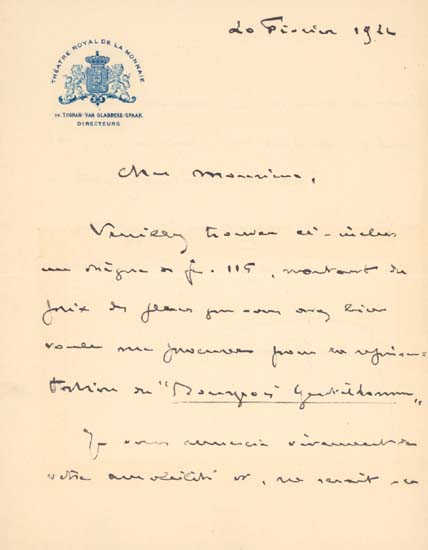 20 Février 1922
THÉATRE ROYAL DE LA MONNAIE
DE THORAN-VAN GLABBEKE-SPAAK
DIRECTEURS
Cher Monsieur,
Veuillez trouver ci-inclus
un chèque de fr. 115, montant du
prix des places que vous avez bien
voulu me procurer pour la représen
tation du "Bourgeois Gentilhomme"
Je vous remercie vivement de
votre amabilité et, ne serait-ce